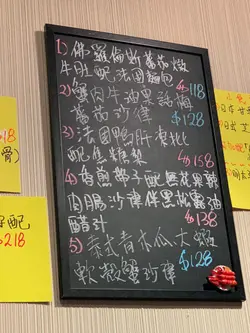 1) 佛羅倫斯蕃茄燉
牛肚配法國麵包
$118
2) 蟹肉牛油果話梅
蕃茄沙律
$128
3) 法國鴨肝凍批
配焦糖梨
$158
4) 香煎帶子配無花果豬
肉腸沙律伴黑松露油
醋汁
$138
5) 泰式青木瓜大蝦
軟殼蟹沙律
$128
118
骨)
配
$218